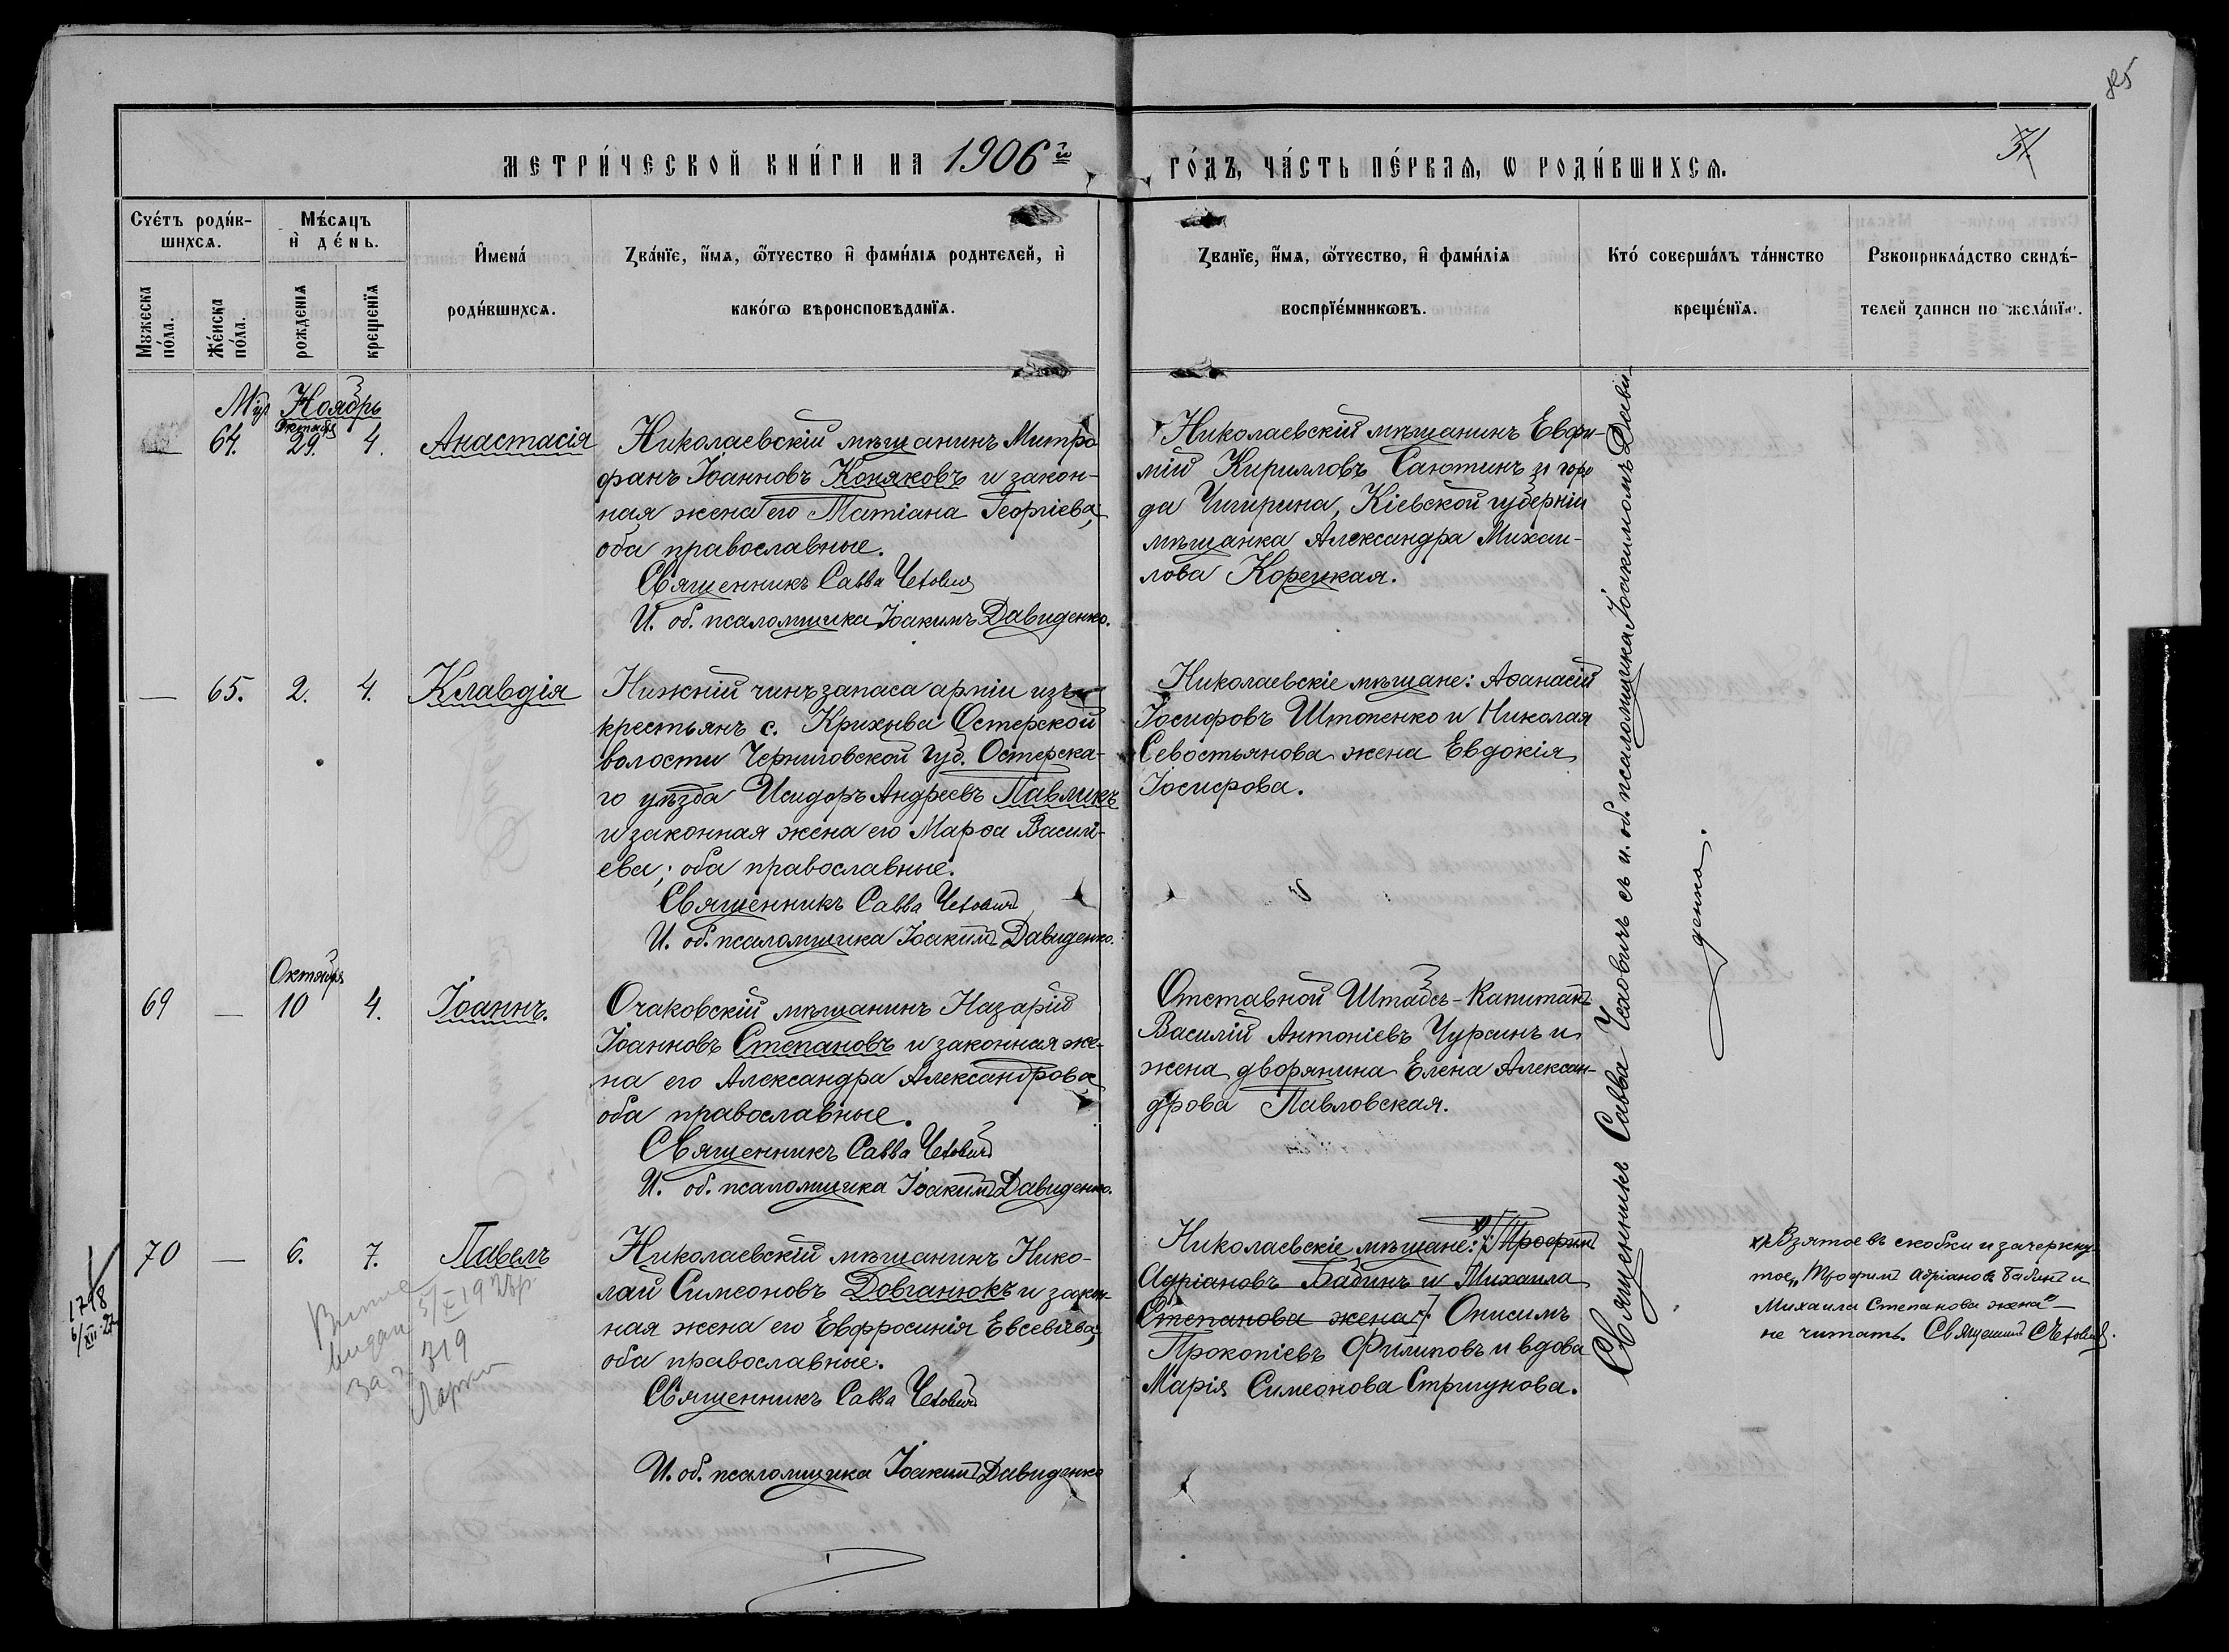 85
МЕТРИ́ЧЕСКОЙ КНИ́ГИ НА 1906й
ГО́ДЪ, ЧА́СТЬ ПЕ́РВАѦ, Ѡ РОДИ́ВШИХСѦ.
31.
Сче́тъ роди́в-
шихсѧ.
Мꙋжеска
по́ла.
Же́нска
по́ла.
Мѣ́сѧцъ
и҆ де́нь.
рожденїѧ
крещенїѧ
И҆мена́
роди́вшихсѧ.
Ꙁва́нїе, и҆́мѧ, ѻ҆́тчество и҆ фами́лїѧ родителей, и҆
како́гѡ вѣроисповѣданїѧ.
Ꙁванїе, и҆́мѧ, ѻ҆́тчество, и҆ фами́лїѧ
воспрїе́мникѡвъ.
Кто́ соверша́лъ та́инство
креще́нїѧ.
Рꙋкоприкла́дство свидѣ́-
телей ꙁаписи по жела́нїю.
Ноябрь
Октября
64. 29. 4. Анастасія
Николаевскій мѣщанинъ Митро
фанъ Іоанновъ Коняковъ и закон-
ная жена его Татіана Георгіева,
оба православные.
Священникъ Савва Чехович
И. об. псаломщика Іоакимъ Давиденко.
Николаевскій мѣщанинъ Евфи-
мій Кирилловъ Саютинъ и горо
да Чигирина, Кіевской губерніи
мѣщанка Александра Михаи-
лова Корецкая.
— 65. 2. 4. Клавдія
Нижній чинъ запаса арміи изъ
крестьянъ с. Крихива Остерской
волости Черниговской губ. Остерска-
го уѣзда Исидоръ Андреевъ Павликъ
и законная жена его Марѳа Васили-
ева; оба православные.
Священникъ Савва Чехович
И. об. псаломщика Іоаким Давиденко.
Николаевскіе мѣщане: Аѳанасій
Іосифовъ Штопенко и Николая
Севостьянова жена Евдокія
Іосифова.
Октября
69 — 10 4. Іоаннъ.
Очаковскій мѣщанинъ Назарій
Іоанновъ Степановъ и законная же-
на его Александра Александрова
оба православные.
Священникъ Савва Чехович
И. об. псаломщика Іоаким Давиденко.
Отставной Штабсъ-Капитан
Василій Антоніевъ Чурсинъ и
жена дворянина Елена Алексан-
дрова Павловская.
70 — 6. 7. Павелъ
Николаевскій мѣщанинъ Нико-
лай Симеоновъ Довганюкъ и закон-
ная жена его Евфросинія Евсевіева,
оба православные.
Священникъ Савва Чехович
И. об. псаломщика Іоаким Давиденко
Николаевскіе мѣщане: х) [Трофим
Адріановъ Бабинъ и Михаила
Степанова жена] Онисимъ
Прокопіевъ Филиповъ и вдова
Марія Симеонова Стригунова.
Священникъ Савва Чеховичъ съ и. об. псаломщика Іоакимомъ Дави-
денко.
х) Взятое въ скобки и зачеркну-
тое „Трофим Адріановъ Бабинъ и
Михаила Степанова жена" —
не читать. Священник СЧехович.
1718
6/XII-27
видан 5/XI 1927р.
за № 319